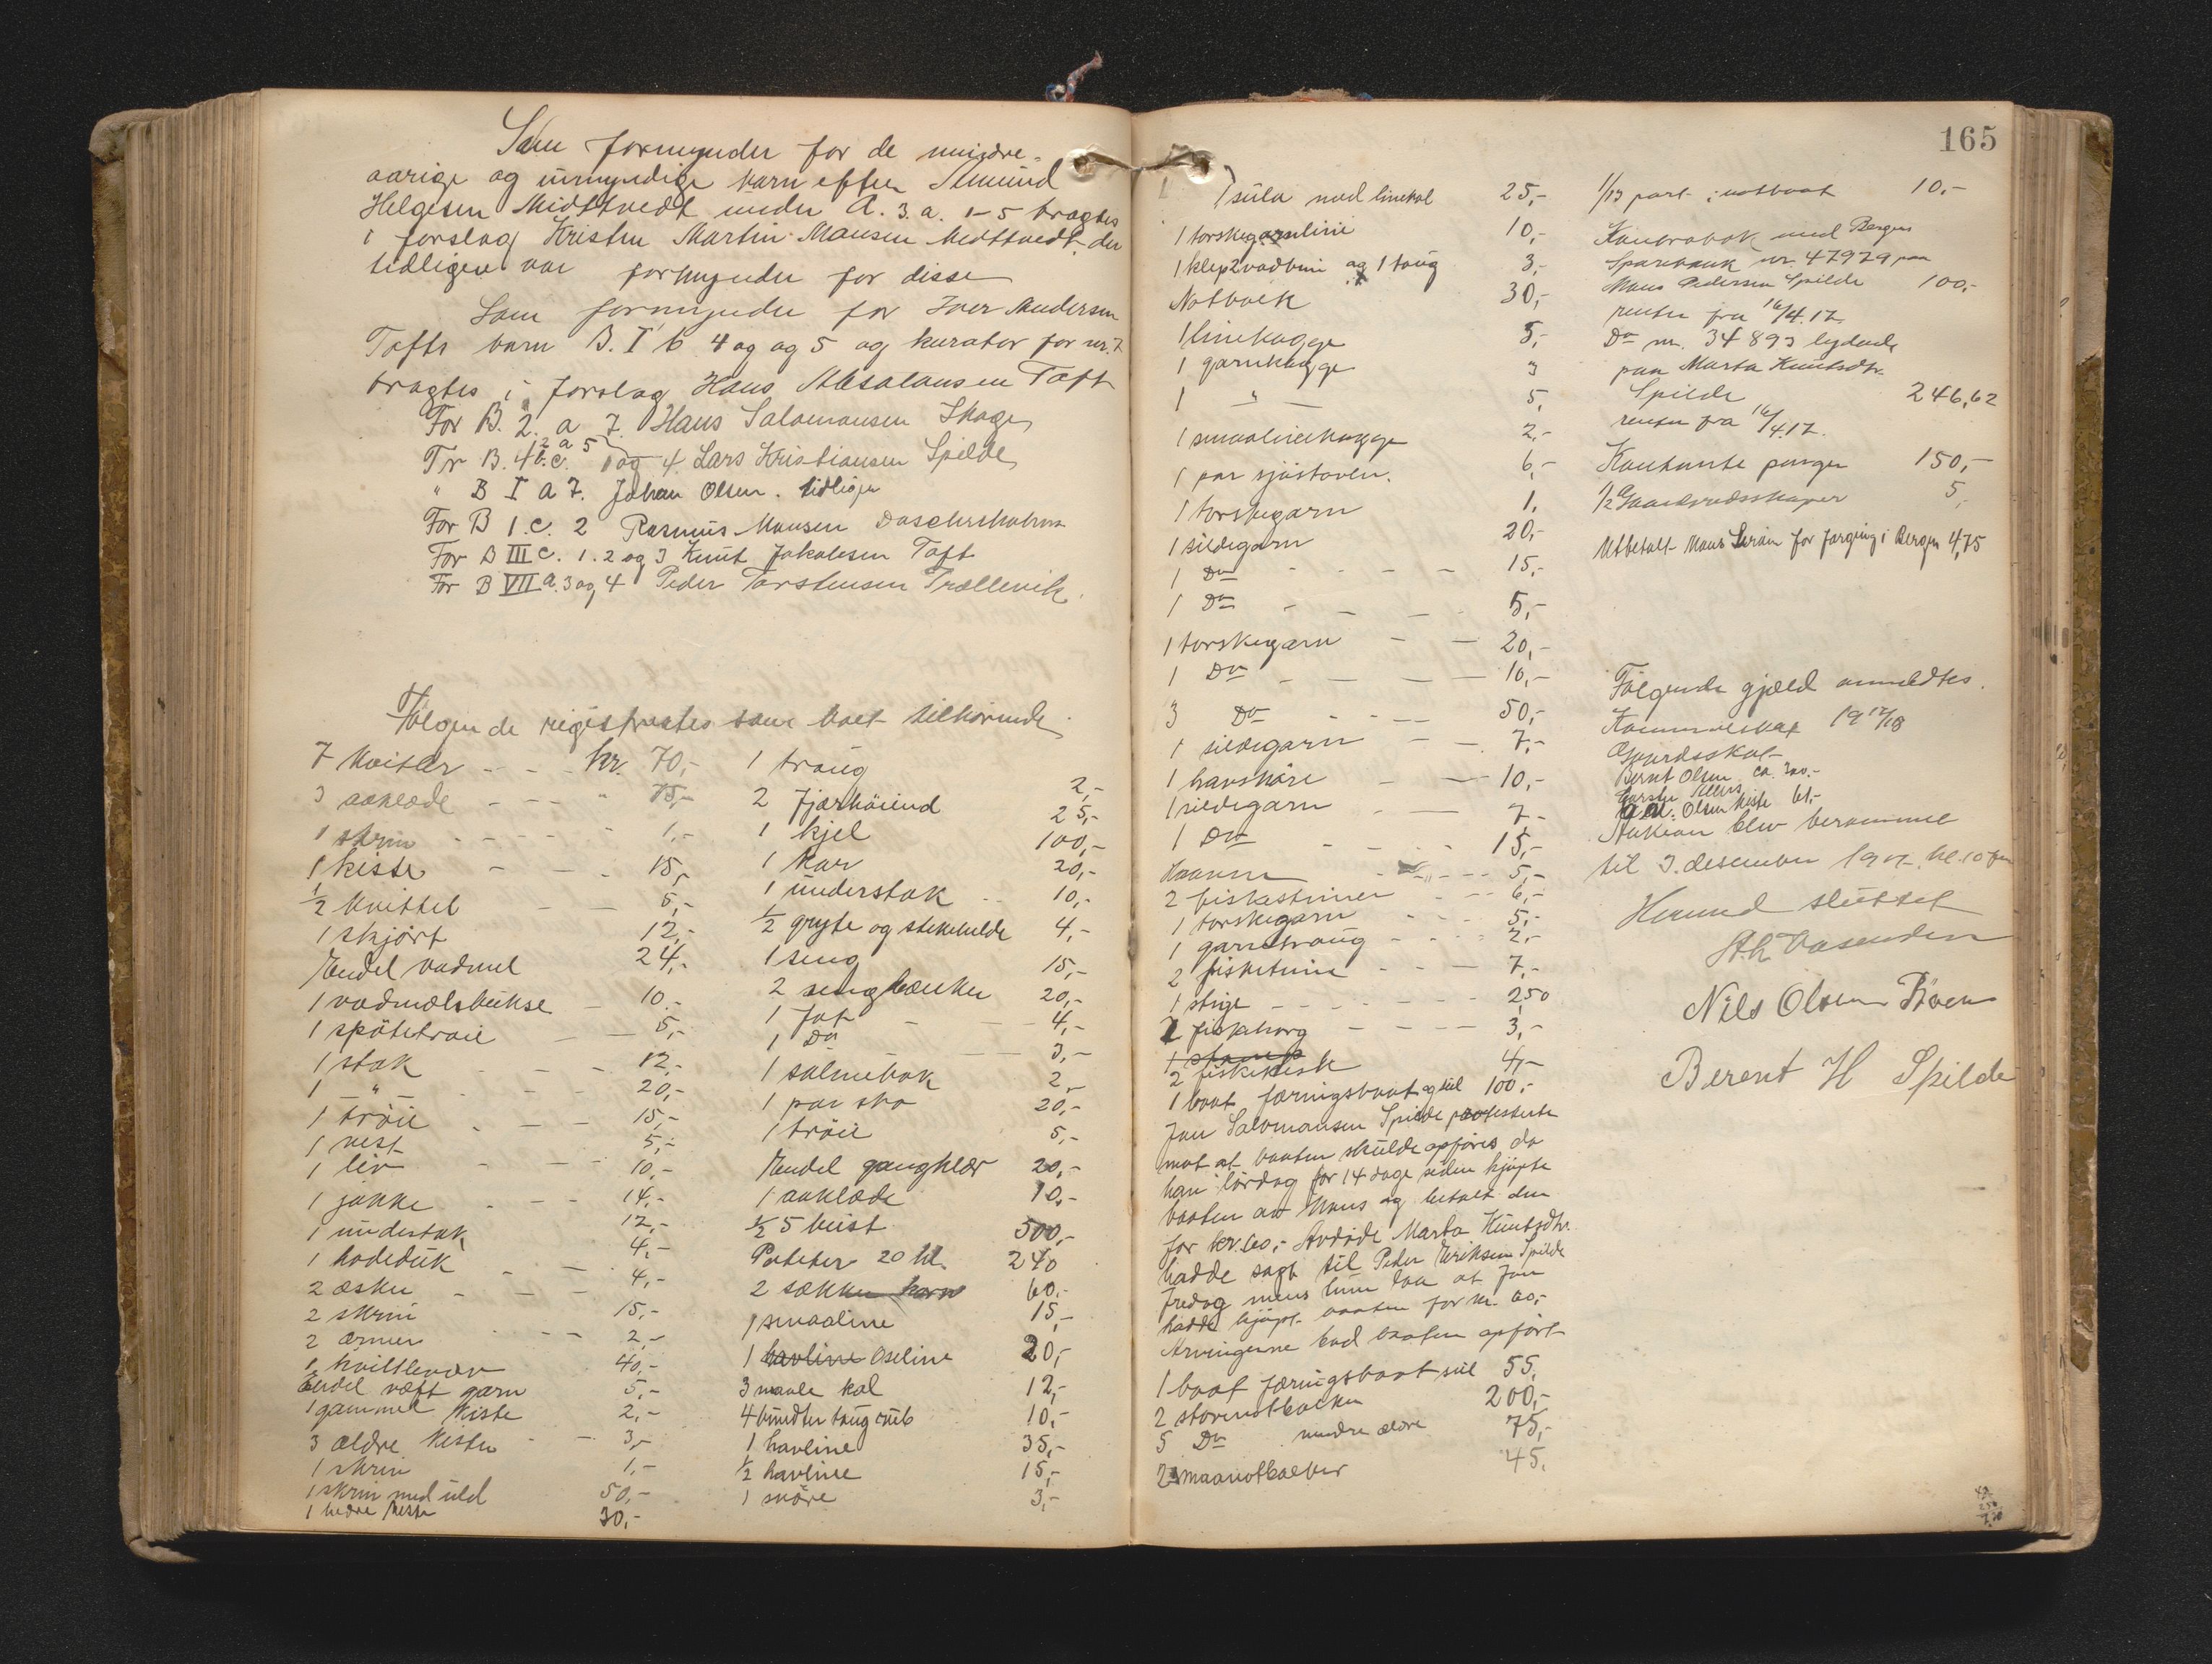 Som formynder for de mindre-
aarige og umyndige barn efter Amund
Helgesen Midttvedt under A. 3. a. 1-5 bragtes
i forslag Kristen Martin Monsen Midttvedt, der
tidligere var formynder for disse
Som formynder for Iver Andersen
Tofts barn B. I b 4 og og 5 og kurator for nr. 7
bragtes i forslag Hans Absalonsen Toft
For B. 2. a 7. Hans Salomonsen Skage
For B. 4 b. c. 1 og 4. Lars Kristiansen Spilde
" B I a 7. Johan Olsen. tidligere
For B 1. c. 2 Rasmus Monsen
For B III c. 1. 2 og 3 Knut Jakobsen Toft
For B VII a. 3 og 4 Peder Torstensen Trællevik.
Følgende registrertes som boet tilhørende.
7 kviter - - - kr. 70,-
3 aaklæde - - - " 75,-
1 skrin - - - - 1,-
1 kiste - - - 15,-
1/2 kvittel - - 5,-
1 skjört 12,-
Endel vadmel 24,-
1 vadmelsbukse - 10.-
1 spötetröie - - 5,-
1 stak - - - 12,-
1 " - - - 20,-
1 tröie - - - 15,-
1 vest 5,-
1 liv - - - 10,-
1 jakke - - - 14,-
1 understak 12,-
1 hodeduk - - 4,-
2 æsker - - - 4,-
2 skrin 15,-
2 ærmer - - - 2,-
1/2 kvittlevær 40,-
Endel væft garn 5,-
1 gammel kiste 2,-
3 ældre kister - - 3,-
1 skrin 1,-
1 skrin med uld 50,-
1 bedre kiste 30,-
1 traug 2,-
2 fjærhöiend 25,-
1 kjel 100,-
1 kar 20,-
1 understak - 10,-
1/2 gryte og stekehelde 4,-
1 seng 15,-
2 sengbænker 20,-
1 fat - - - 4,-
1 Do - - - 3,-
1 salmebok 2,-
1 par sko 20,-
1 tröie 5,-
Endel gangklær 20,-
1 aaklæde 10,-
1/2 5 beist 500,-
Poteter 20 hl. 240
2 sække korn 60,-
1 smaaline 15,-
1 havline Oseline 20,-
3 maale kol 12,-
4 bundter taug 10,-
1 havline 35,-
1/2 havline 15,-
1 snöre 3,-
165
1 sula med linekol 25,-
1 torskegarnlinie 10,-
1 klep 2 vadbein og 1 taug 3,-
Notbolk 30,-
1 linekagge 5,-
1 garnkagge 3
1 " - 5,
1 smaalinekagge 2,-
1 par sjöstøvler. 6,-
1 torskegarn 1,
1 sildegarn 20,-
1 Do - - - - 15,-
1 Do - - - - 5,-
1 torskegarn - - 20,-
1 Do - - - - 10,-
3 Do - - - 50,-
1 sildegarn - - 7,-
1 havsnöre - - 10,-
1 sildegarn - - 7-
1 Do - - - - 15,-
- - - 5,-
2 - - 6,-
1 torskegarn - - - 5,-
1 garntraug - - - 2,-
2 fisketiner - - - 7,-
1 stige - - - - - 2,50
2 fiskekorg - - - - 3,-
1 stamp
2 4,-
1 baat færingsbaat og seil 100,-
Jon Salomonsen Spilde protesterte
mot at baaten skulde opføres da
han lørdag for 14 dage siden kjøpte
baaten av Mons og betalt den
for kr. 60,- Avdøde Marta Knutsdtr.
hadde sagt til Peder Eriksen Spilde
fredag mens hun laa at Jon
hadde kjøpt baaten for kr. 60,-
Arvingerne bad baaten opført
1 baat færingsbaat seil 55,
2 stornotbolker 200,-
5 Do mindre ældre 75,-
2 smaanotbolker 45,
1/13 part i notbaat 10,-
Kontrabok med Bergens
Sparebank nr. 47979 paa
Mons Pedersen Spilde 100,-
renter fra 16/4.17.
Do nr. 34893 lydende
paa Marta Knutsdtr.
Spilde 246,62
renter fra 16/4.17.
Kontante penger 150,-
1/2 Gaardsredskaper 5,
Utbetalt Mons for farging i Bergen 4,75
Følgende gjæld anmeldtes.
Kommuneskat 1917/18
Gaardsskat
Bernt Olsen ca. 300.-
Olsen kiste 61,-
Auktion blev berammet
til 3. desember 1917 kl. 10 fm
Hermed sluttet
A. K. Vasenden
Nils Olsen Böen
Berent H Spilde